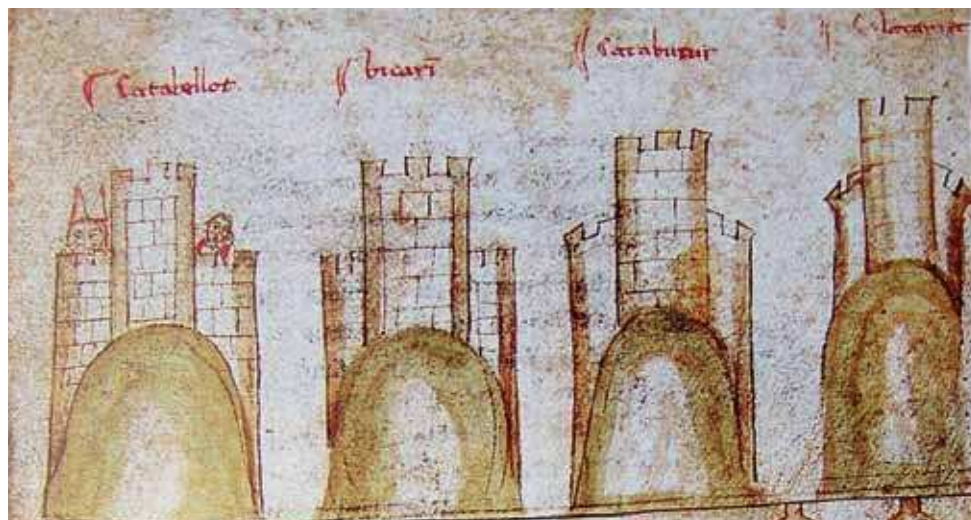 Catabellot.
bicarī
Catabutur